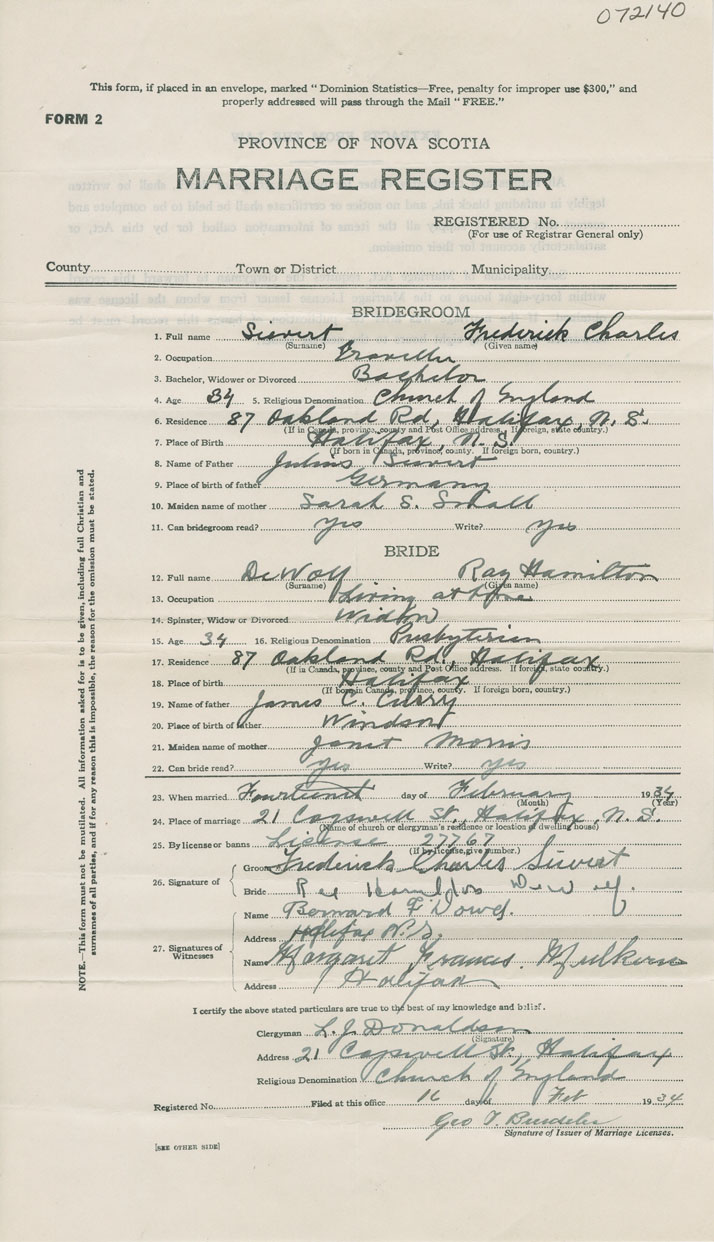 072140
This form, if placed in an envelope, marked "Dominion Statistics—Free, penalty for improper use $300," and
properly addressed will pass through the Mail "FREE."
FORM 2
PROVINCE OF NOVA SCOTIA
MARRIAGE REGISTER
REGISTERED No.
(For use of Registrar General only)
County Town or District Municipality
BRIDEGROOM
1. Full name Sievert Frederick Charles
(Surname) (Given name)
2. Occupation Traveller
3. Bachelor, Widower or Divorced Bachelor
4. Age 34 5. Religious Denomination Church of England
6. Residence 87 Oakland Rd, Halifax, N. S.
(If in Canada, province, county and Post Office address. If foreign, state country.)
7. Place of Birth Halifax, N. S.
(If born in Canada, province, county. If foreign born, country.)
8. Name of Father Julius Sievert
9. Place of birth of father Germany
10. Maiden name of mother Sarah S.
11. Can bridegroom read? yes Write? yes
BRIDE
12. Full name DeWolf Ray Hamilton
(Surname) (Given name)
13. Occupation Living at home
14. Spinster, Widow or Divorced Widow
15. Age 34 16. Religious Denomination Presbyterian
17. Residence 87 Oakland Rd., Halifax
(If in Canada, province, county and Post Office address. If foreign, state country.)
18. Place of birth Halifax
(If born in Canada, province, county. If foreign born, country.)
19. Name of father James C. Curry
20. Place of birth of father Windsor
21. Maiden name of mother Janet Morris
22. Can bride read? yes Write? yes
23. When married Fourteenth day of February 1934
(Month) (Year)
24. Place of marriage 21 Cogswell St., Halifax, N. S.
(Name of church or clergyman's residence or location of dwelling house)
25. By license or banns License 27767
(If by license, give number.)
26. Signature of
Groom Frederick Charles Sievert
Bride Ray Hamilton DeWolf.
27. Signatures of Witnesses
Name Bernard F Dowd.
Address Halifax N.S.
Name Margaret Frances
Address Halifax
I certify the above stated particulars are true to the best of my knowledge and belief.
Clergyman L. J. Donaldson
(Signature)
Address 21 Cogswell St., Halifax
Religious Denomination Church of England
Registered No. Filed at this office 16 day of Feb 1934
Geo T.
Signature of Issuer of Marriage Licenses.
[SEE OTHER SIDE]
NOTE.—This form must not be mutilated. All information asked for is to be given, including full Christian and
surnames of all parties, and if for any reason this is impossible, the reason for the omission must be stated.